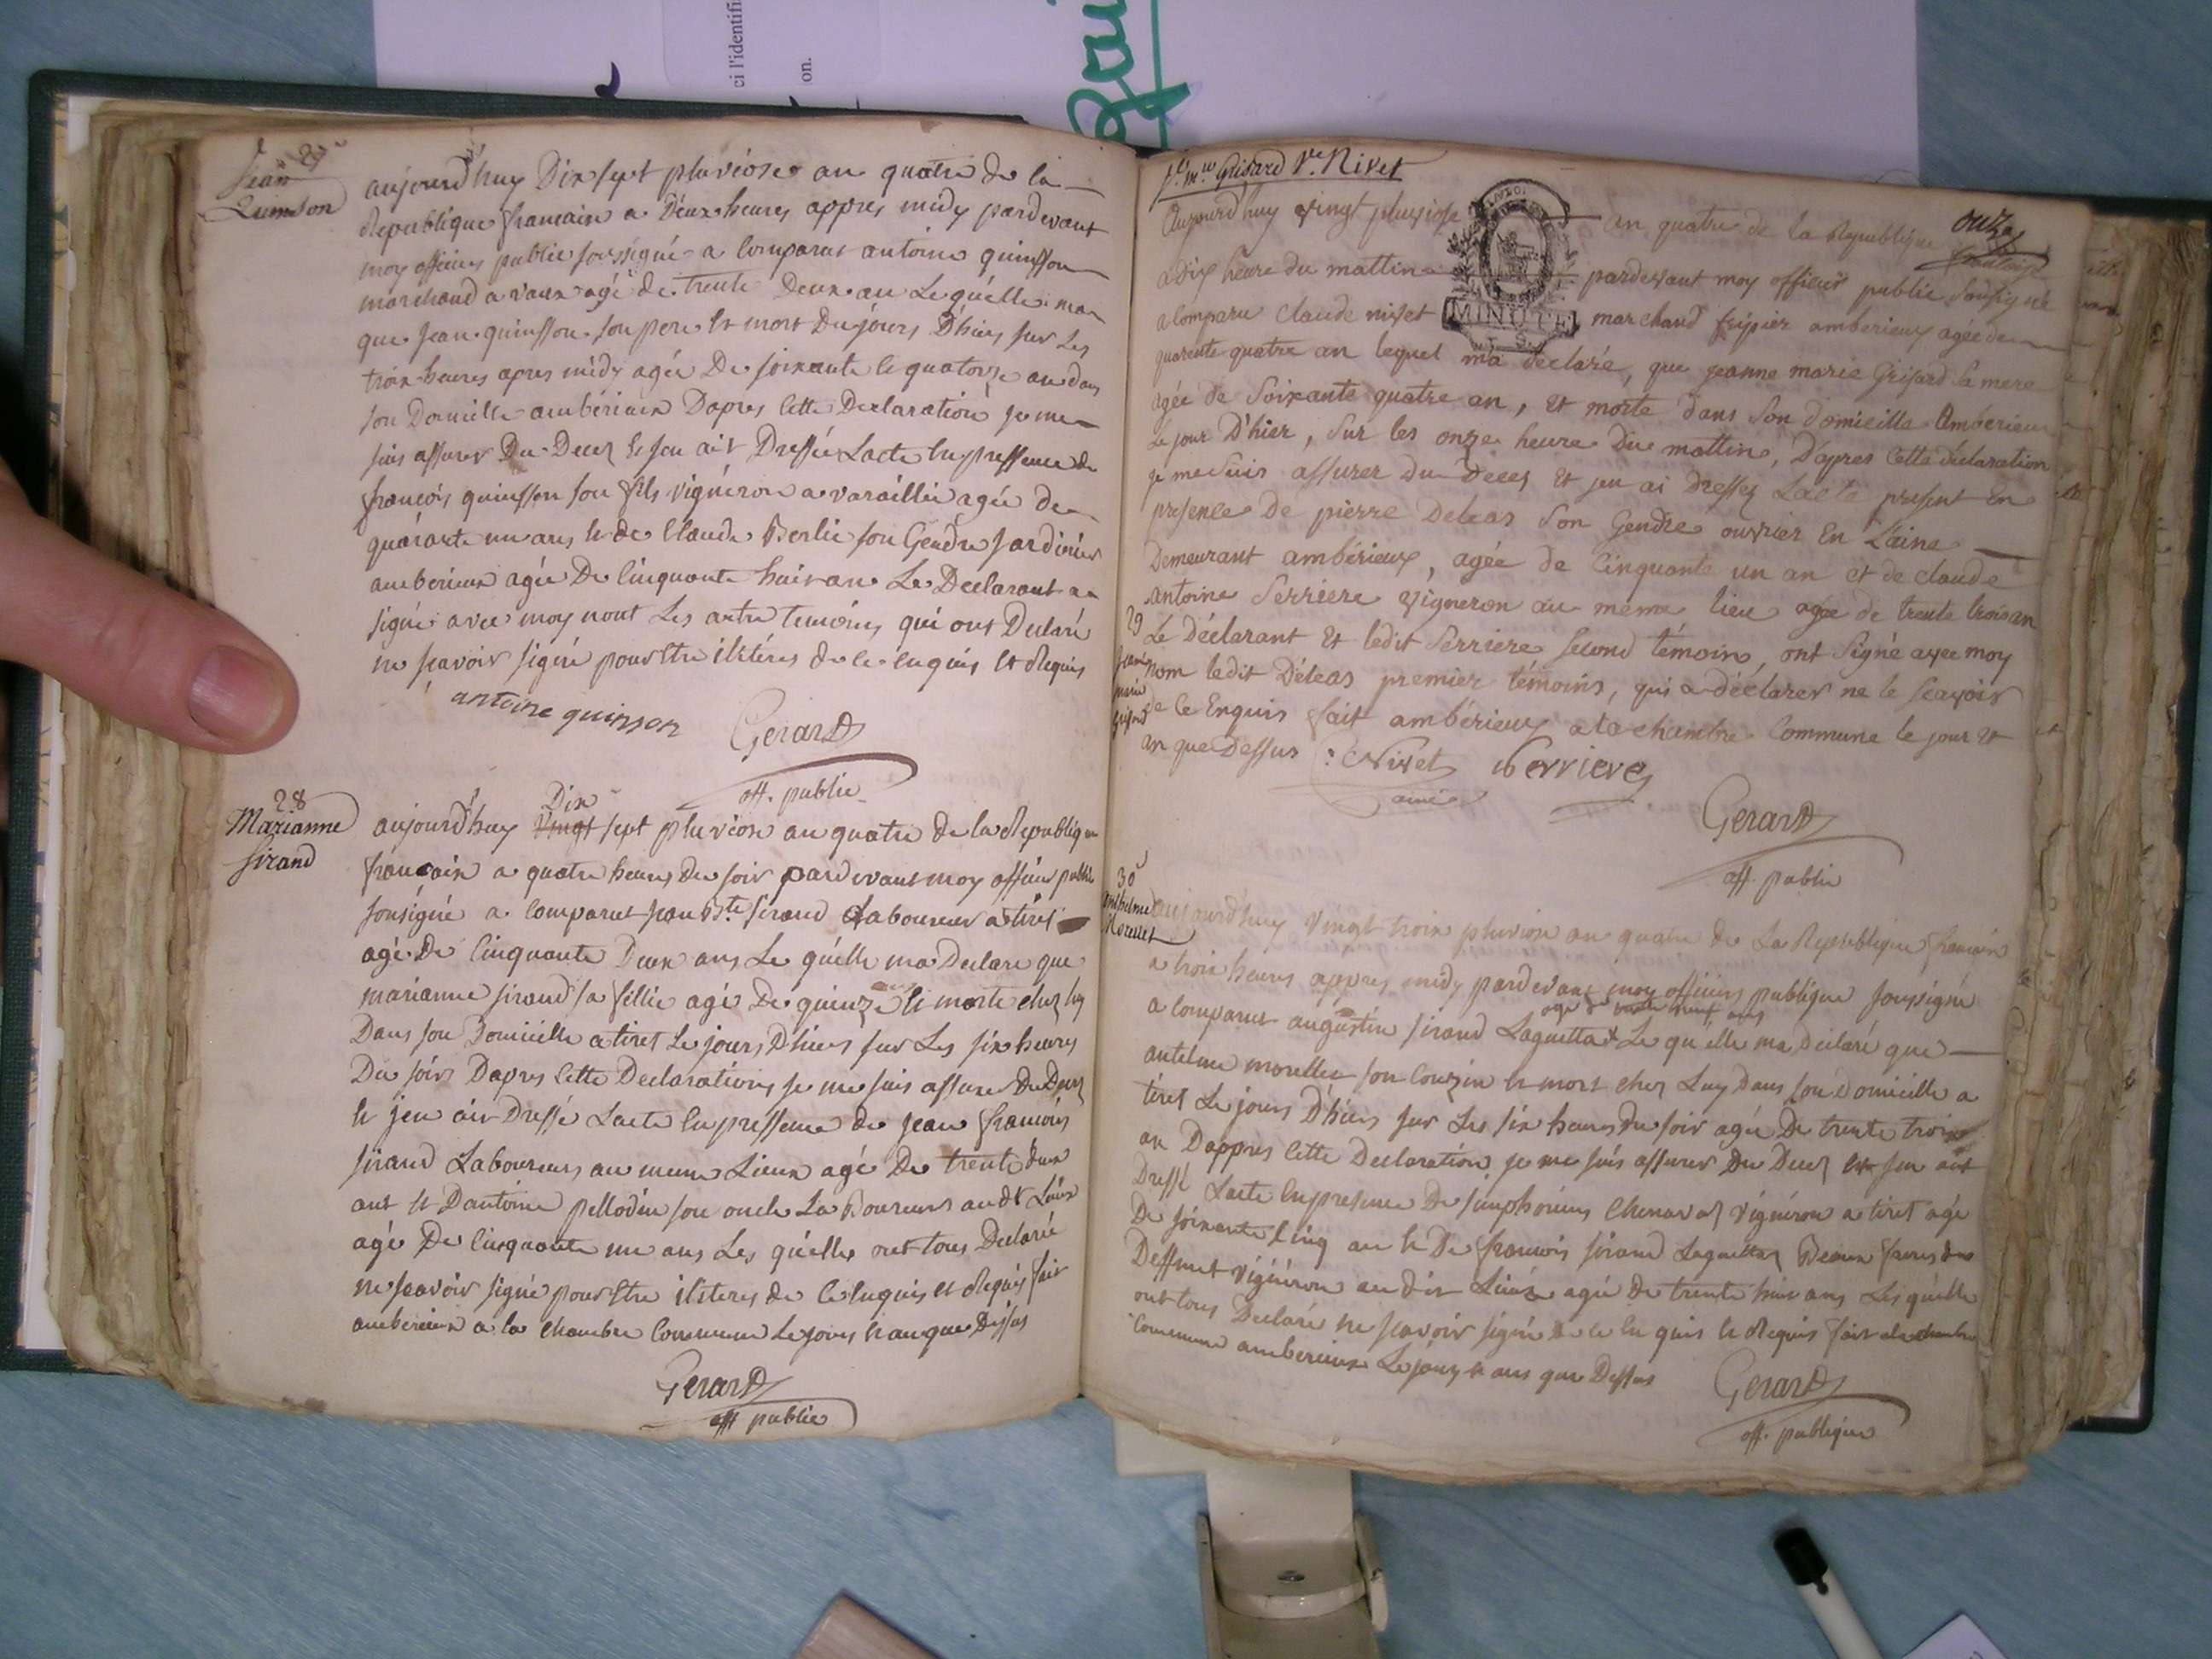 27
Jean
Quinson
aujourd'huy Dix sept pluviose an quatre de la
Republique francaix a Deux heures appres midy pardevant
moy officier public soussigné a comparut antoine quinsson
marchand a vaux agé de trente Deux an Le quelle ma
que jean quinsson son pere et mort Du jours D'hier sur Les
trois heures apres midy agée De soixante et quatorze an dans
son Domicille ambérieux Dapres cette Declaration je me
suis assurer Du Decez et jen ait Dressée Lacte en pressence de
françois quinsson son fils vigneron a varaillie agée de
quarante un ans et de Claude Berlie son Gendre jardinier
amberieux agée De cinquante huit an Le Declarant a
signé avec moy nont Les autre temoins qui ont Declaré
ne scavoir signé pour etre iliterés de ce enquis et Requis
antoine quinson Gerard
off. public
28
Marianne
sirand
aujourd'huy Vingt Dix sept pluviose an quatre de la Republique
francaix a quatre heures du soir pardevant moy officier public
sousigné a comparut jean Bte sirand Laboureur a tiret
agé De Cinquante Deux ans Le quelle ma Declare que
marianne sirand sa fillie agé De quinze et morte chez luy
Dans son Domicille a tiret Le jours D'hiers sur Les six heures
Du soirs Dapres cette Declaration je me suis assuré du Decez
et jen ait Dressé Lacte en pressence de jean francois
sirand Laboureurs au meme Lieux agé De trente deux
ant et Dantoine pellodin son oncle La Boureurs audt Lieux
agé De Cinquante un ans Les quelles ont tous Declaré
ne scavoir signé pour etre iliteres de ce enquis et Requis fait
amberieux a la chambre Commune Le jours et an que Dessus
Gerard
off public
Je. m.ie Grisard Ve. Nivet
onze
Aujourd'huy vingt pluviose an quatre de la Republique
a dix heure du mattin pardevant moy officier public sousigné
MINUTE
a comparu claude nivet marchand fripier amberieux agée de
quarente quatre an lequel ma declaré, que jeanne marie Grisard sa mere
agée de soixante quatre an, et morte dans son domicille Amberieux
le jour D'hier, sur les onze heure du mattin, D'apres cette declaration
je me suis assurer du Deces et jen ai dresser Lacte present En
presence De pierre Deleas son Gendre ouvrier En Laine
Demeurant ambérieux, agée de Cinquante un an et de claude
antoine Serriere vigneron au meme lieu agée de trente trois an
29
Le Déclarant et ledit Serriere second témoin, ont Signé avec moy
jeane
marie
grisard
nom ledit Déleas premier témoins, qui a déclarer ne le sçavoir
de ce Enquis fait ambérieux a la chambre Commune le jour et
an que Dessus C Nivet Serriere
ainé
Gerard
off. public
30
anthelme
Morellet
aujourd'huy Vingt trois pluviose an quatre de La Republique francaix
a trois heures appres midy pardevant moy officiers publique soussigné
agé de trente neuf ans
a comparut augustin sirand Laguetta Le quelle ma Declaré que
antelme morellet son couzin et mort chez Luy Dans son Domicille a
tiret Le jours D'hiers sur Les six heures du soir agée De trente trois
an Dappres cette Declaration je me suis assurer Du Decez et jen ait
Dressé Lacte en presence De simphorien Chenavaz vigneron a tiret agé
De soixante cinq an et De francois sirand Laguettaz Beaux freres du
Deffunt vigneron au dit Lieux agée De trente huit ans Les quelle
ont tous Declaré ne scavoir signé de ce enquis et Requis fait a la chambre
Commune amberieux Le jours et ans que Dessus
Gerard
off. publique
ci l'identifi
on.